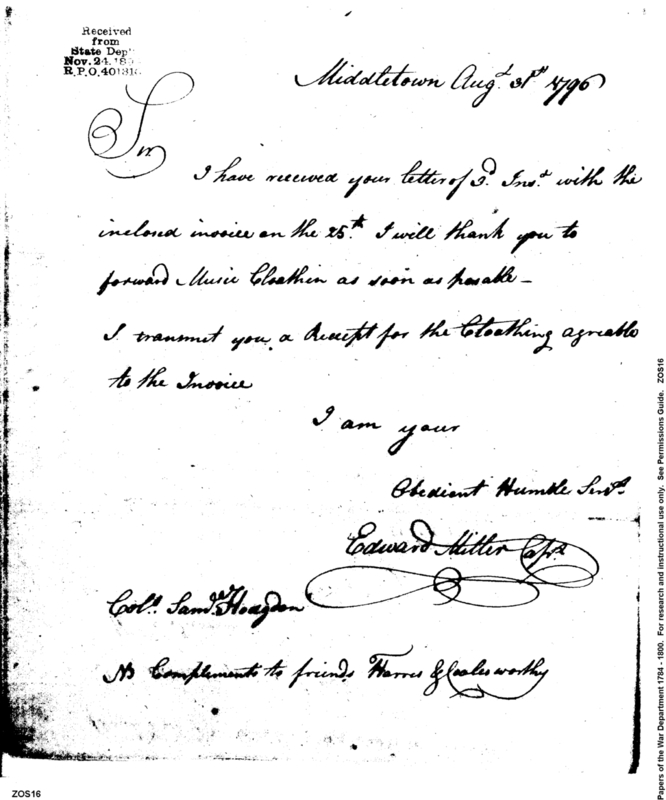 Received
from
State Dep't
Nov. 24. 18
R.P.O. 401
Middletown Augt. 31st. 1796
Sir
I have received your letter of 3d. Inst. with the
inclosed invoice on the 25th. I will thank you to
forward Music Cloathin as soon as posable –
I transmit you a Receipt for the Cloathing agreable
to the Invoice
I am your
Obedient Humble Servt.
Edward Miller Capt.
Coll. Saml. Hodgdon
NB Complements to friends Harris & Coalesworthy
Papers of the War Department 1784 - 1800. For research and instructional use only. See Permissions Guide. ZOS16
ZOS16